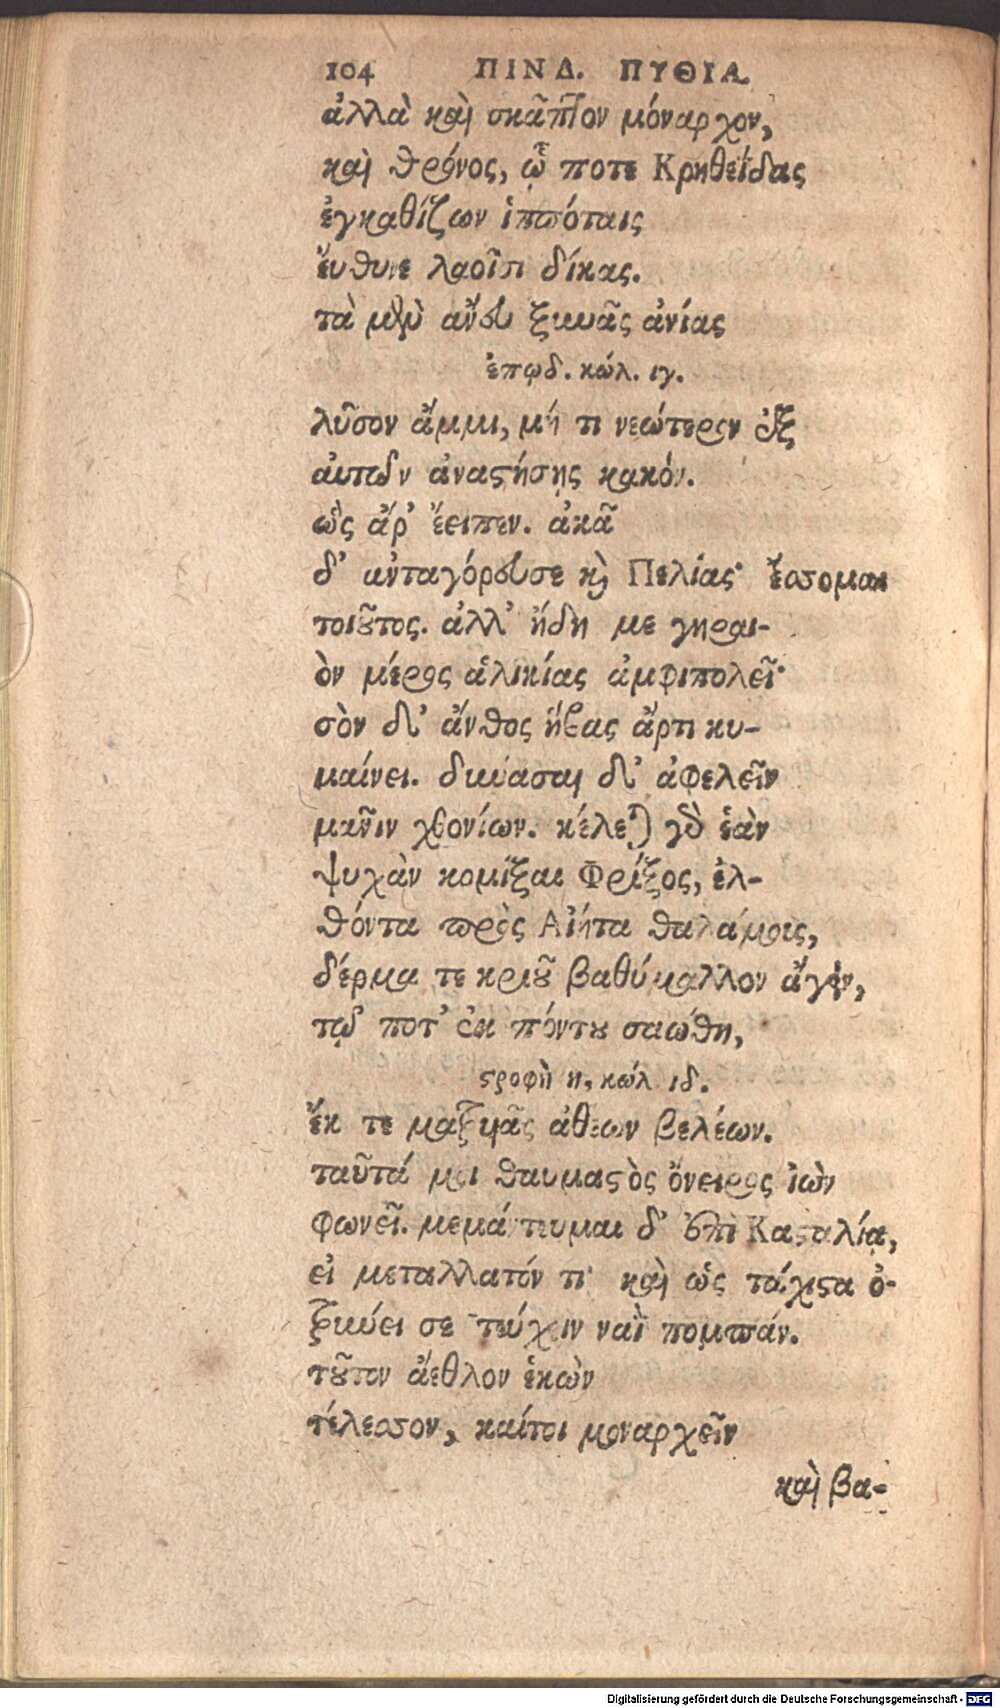 104 ΠΙΝΔ. ΠΥΘΙΑ.
ἀλλὰ καὶ σκᾶπτον μόναρχον,
καὶ θρόνος, ᾧ ποτε Κρηθεΐδας
ἐγκαθίζων ἱππόταις
ἔυθυνε λαοῖσι δίκας.
τὰ μὲν ἄνευ ξυνᾶς ἀνίας
ἐπῳδ. κώλ. ιγ.
λῦσον ἄμμι, μή τι νεώτερον ἐξ
ἀυτῶν ἀναστήσῃς κακόν.
ὣς ἄρ' ἔειπεν. ἀκᾶ
δ' ἀνταγόρευσε καὶ Πελίας· ἔσομαι
τοιοῦτος. ἀλλ' ἤδη με γηραι-
ὸν μέρος ἁλικίας ἀμφιπολεῖ·
σὸν δ' ἄνθος ἥβας ἄρτι κυ-
μαίνει. δύνασαι δ' ἀφελεῖν
μᾶνιν χθονίων. κέλεται γὰρ ἑὰν
ψυχὰν κομίξαι Φρίξος, ἐλ-
θόντα πρὸς Αἰήτα θαλάμοις,
δέρμα τε κριοῦ βαθύμαλλον ἄγειν,
τῷ ποτ' ἐκ πόντου σαώθη,
στροφὴ η, κώλ ιδ.
ἔκ τε ματρυιᾶς ἀθέων βελέων.
ταῦτά μοι θαυμαστὸς ὄνειρος ἰὼν
φωνεῖ. μεμάντευμαι δ' ἐπὶ Κασταλίᾳ,
εἰ μεταλλατόν τι· καὶ ὡς τάχιστα ὀ-
τρύνει σε τεύχειν ναῒ πομπάν.
τοῦτον ἄεθλον ἑκὼν
τέλεσον, καίτοι μοναρχεῖν
καὶ βα-
Digitalisierung gefördert durch die Deutsche Forschungsgemeinschaft - DFG